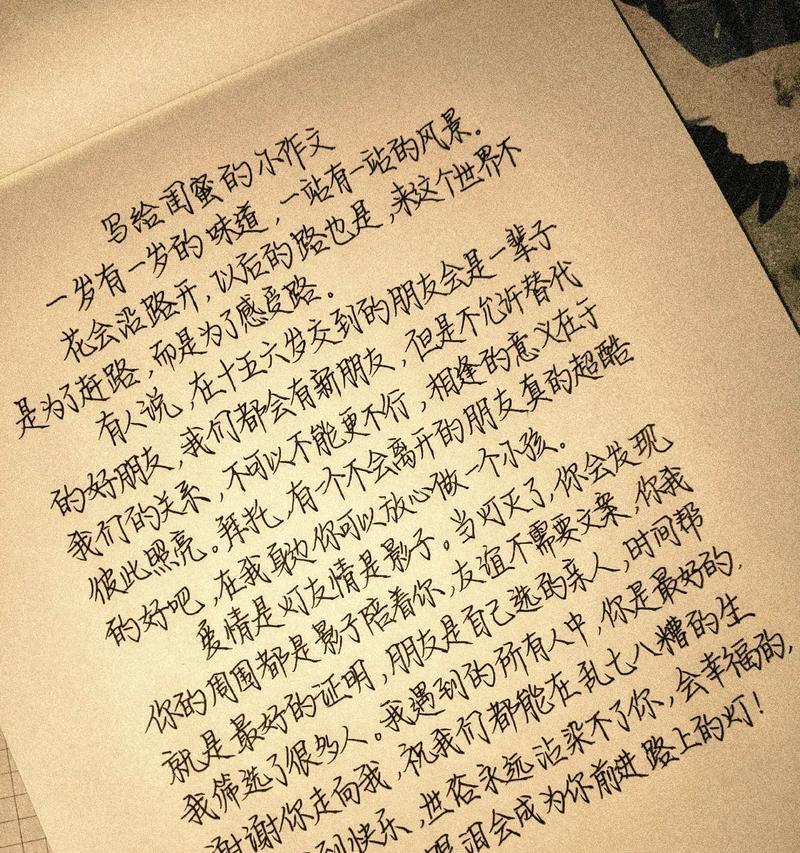 写给闺蜜的小作文
一岁有一岁的味道，一站有一站的风景。
花会沿路开，以后的路也是，来这个世界不
是为了赶路，而是为了感受路。
有人说，在十五六岁交到的朋友会是一辈子
的好朋友，我们都会有新朋友，但是不允许替代
我们的关系，不可以不能更不行，相逢的意义在于
彼此照亮。拜托，有一个不会离开的朋友真的超酷
的好吧，在我身边你可以放心做一个小孩。
爱情是灯友情是影子。当灯灭了，你会发现
你的周围都是影子陪着你，友谊不需要文案，你我
就是最好的证明，朋友是自己选的亲人，时间帮
我筛选了很多人。我遇到的所有人中，你是最好的，
谢谢你走向我，祝我们都能在乱七八糟的生
到快乐，世俗永远沾染不了你，会幸福的，
泪会成为你前进路上的灯！